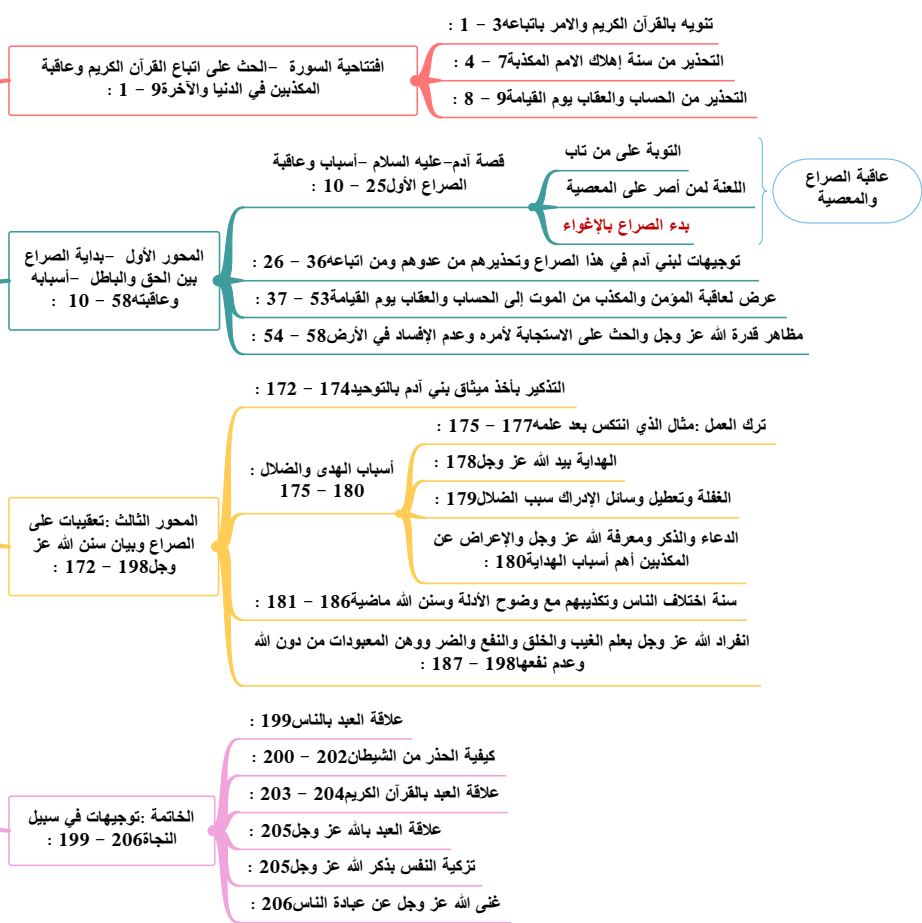 افتتاحية السورة –الحث على اتباع القرآن الكريم وعاقبة
المكذبين في الدنيا والآخرة9 – 1 :
تنويه بالقرآن الكريم والامر باتباعه3 – 1 :
التحذير من سنة إهلاك الامم المكذبة7 – 4 :
التحذير من الحساب والعقاب يوم القيامة9 – 8 :
المحور الأول –بداية الصراع
بين الحق والباطل –أسبابه
وعاقبته58 – 10 :
قصة آدم–عليه السلام –أسباب وعاقبة
الصراع الأول25 – 10 :
التوبة على من تاب
اللعنة لمن أصر على المعصية
بدء الصراع بالإغواء
عاقبة الصراع
والمعصية
توجيهات لبني آدم في هذا الصراع وتحذيرهم من عدوهم ومن اتباعه36 – 26 :
عرض لعاقبة المؤمن والمكذب من الموت إلى الحساب والعقاب يوم القيامة53 – 37 :
مظاهر قدرة الله عز وجل والحث على الاستجابة لأمره وعدم الإفساد في الأرض58 – 54 :
المحور الثالث :تعقيبات على
الصراع وبيان سنن الله عز
وجل198 – 172 :
التذكير بأخذ ميثاق بني آدم بالتوحيد174 – 172 :
أسباب الهدى والضلال :
175 – 180
ترك العمل :مثال الذي انتكس بعد علمه177 – 175 :
الهداية بيد الله عز وجل178 :
الغفلة وتعطيل وسائل الإدراك سبب الضلال179 :
الدعاء والذكر ومعرفة الله عز وجل والإعراض عن
المكذبين أهم أسباب الهداية180 :
سنة اختلاف الناس وتكذيبهم مع وضوح الأدلة وسنن الله ماضية186 – 181 :
انفراد الله عز وجل بعلم الغيب والخلق والنفع والضر ووهن المعبودات من دون الله
وعدم نفعها198 – 187 :
الخاتمة :توجيهات في سبيل
النجاة206 – 199 :
علاقة العبد بالناس199 :
كيفية الحذر من الشيطان202 – 200 :
علاقة العبد بالقرآن الكريم204 – 203 :
علاقة العبد بالله عز وجل205 :
تزكية النفس بذكر الله عز وجل205 :
غنى الله عز وجل عن عبادة الناس206 :